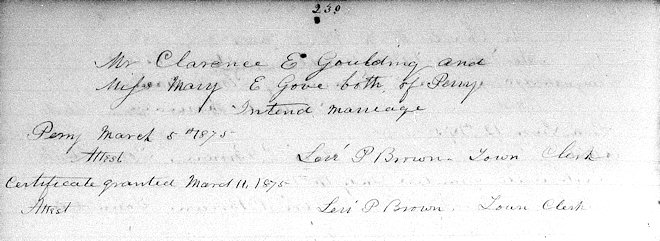 230
Mr Clarence E Goulding and
Miss Mary E Gove both of Perry
Intend marriage
Perry March 5th 1875
Attest Levi P Brown Town Clerk
Certificate granted March 11, 1875
Attest Levi P Brown. Town Clerk